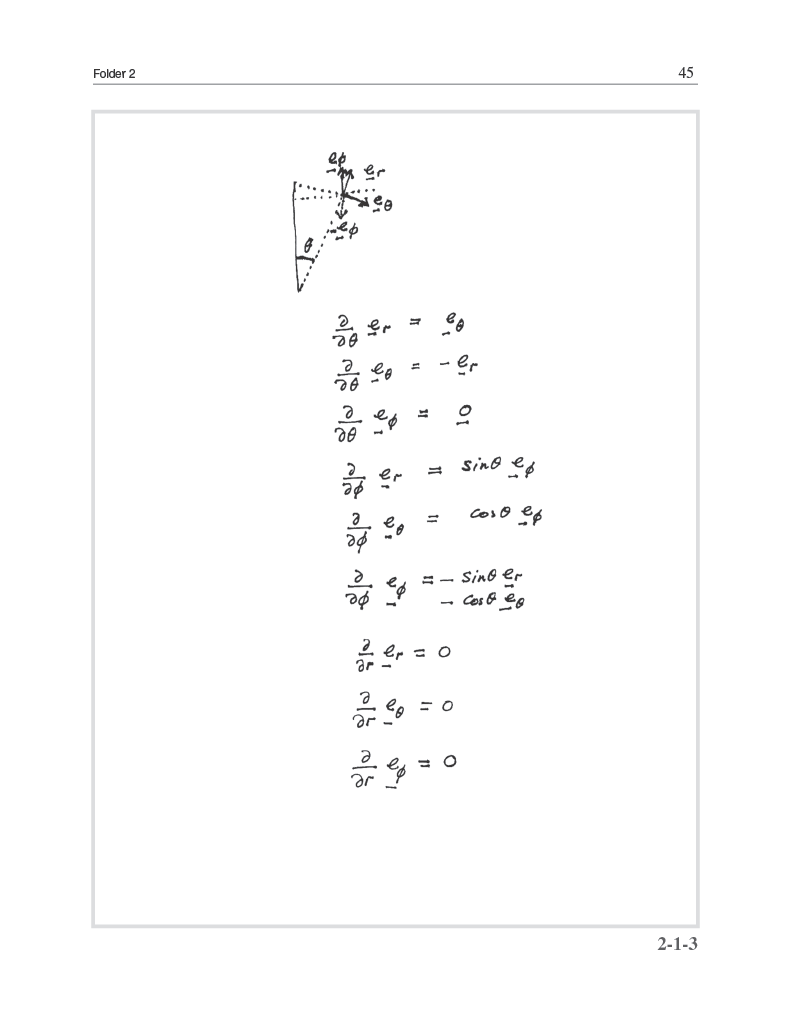 Folder 2 45
e̲ϕ
e̲r
e̲θ
-e̲ϕ
θ
∂/∂θ e̲r = e̲θ
∂/∂θ e̲θ = - e̲r
∂/∂θ e̲ϕ = 0̲
∂/∂ϕ e̲r = sinθ e̲ϕ
∂/∂ϕ e̲θ = cosθ e̲ϕ
∂/∂ϕ e̲ϕ = - sinθ e̲r
- cosθ e̲θ
∂/∂r e̲r = 0
∂/∂r e̲θ = 0
∂/∂r e̲ϕ = 0
2-1-3